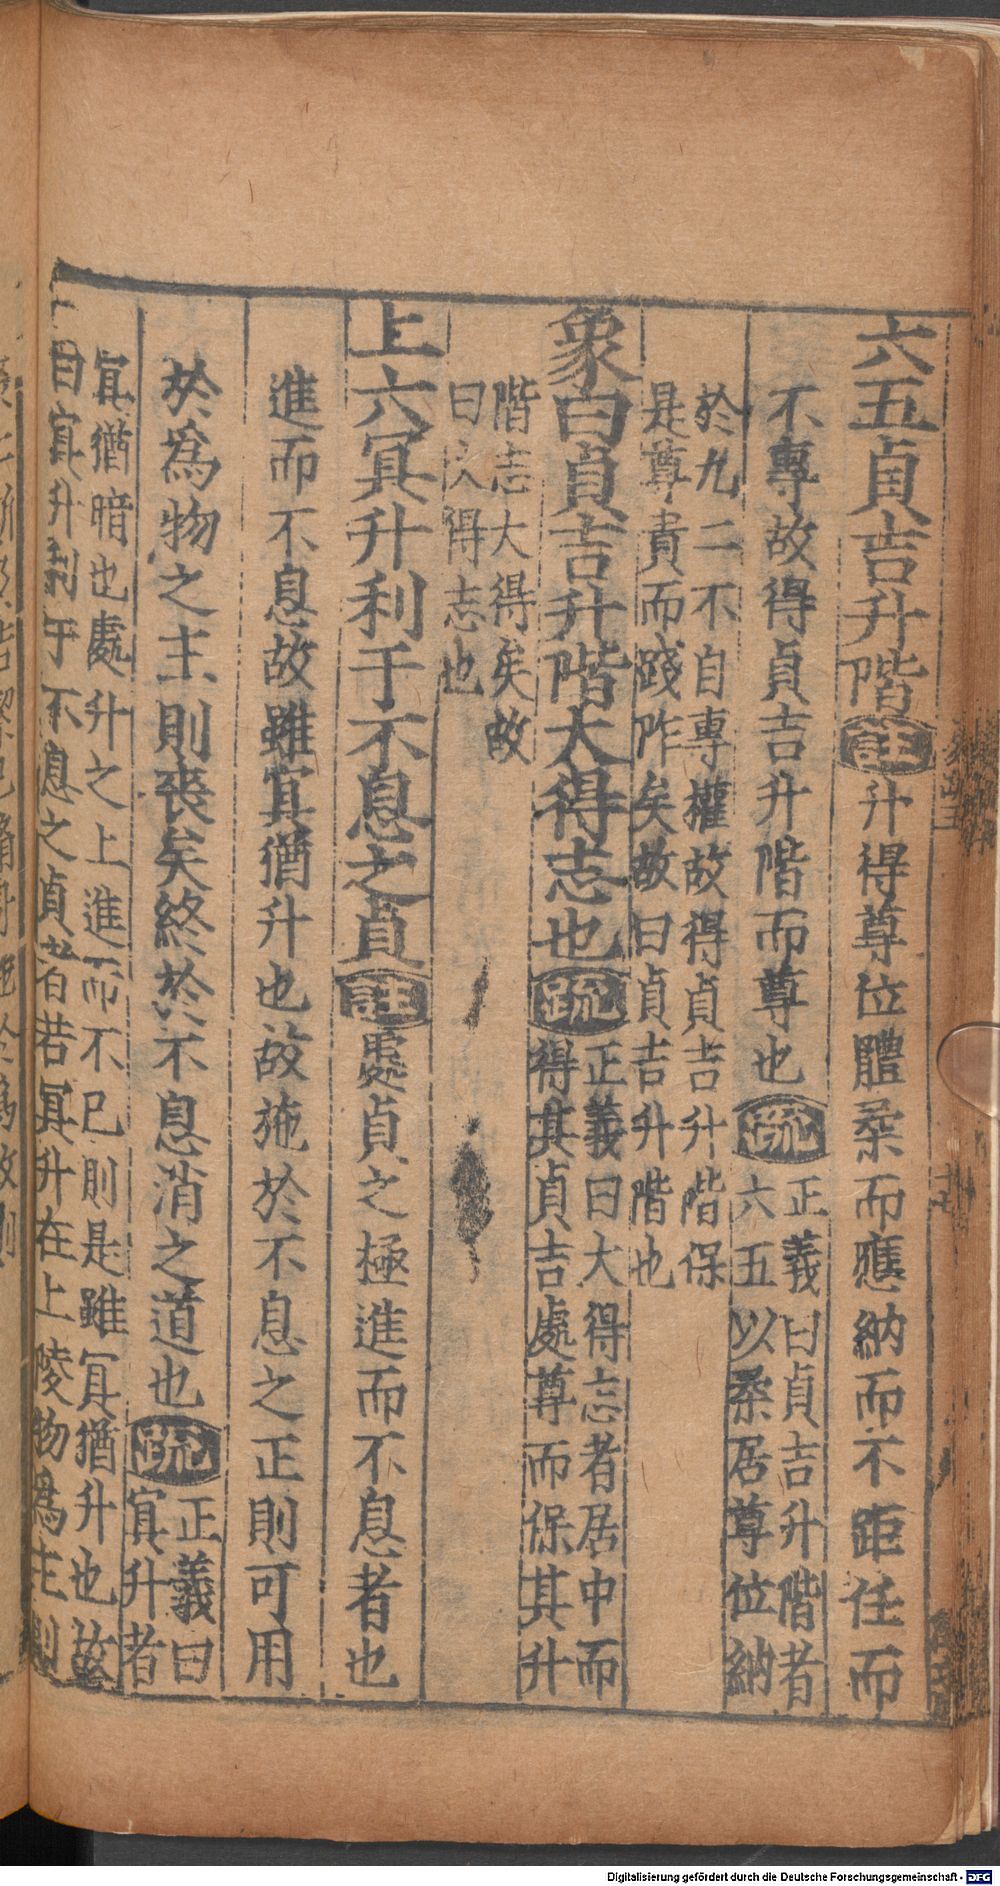 六五貞吉升階註升得尊位體柔而應納而不距任而
不專故得貞吉升階而尊也疏正義曰貞吉升階者
六五以柔居尊位納
於九二不自專權故得貞吉升階保
是尊貴而踐阼矣故曰貞吉升階也
象曰貞吉升階大得志也疏正義曰大得志者居中而
得其貞吉處尊而保其升
階志大得矣故
曰大得志也
上六冥升利于不息之貞註處貞之極進而不息者也
進而不息故雖冥猶升也故施於不息之正則可用
於為物之主則喪矣終於不息消之道也疏正義曰
冥升者
冥猶暗也處升之上進而不已則是雖冥猶升也故
曰冥升利于不息之貞者若冥升在上陵物為主則
Digitalisierung gefördert durch die Deutsche Forschungsgemeinschaft - DFG